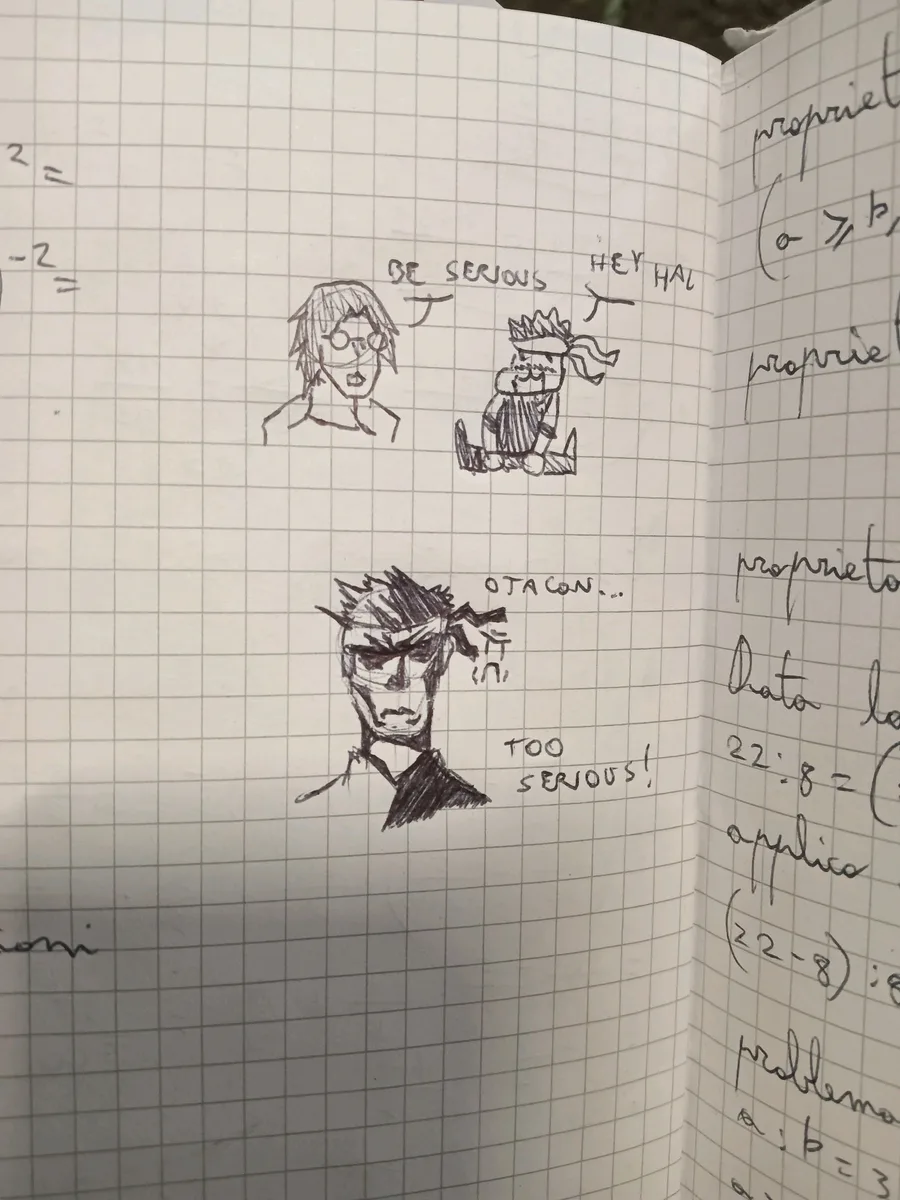 2 =
-2 =
BE SERIOUS
HEY HAL
OTACON...
TOO
SERIOUS!
ioni
propriet
(a ≥ b,
proprie
proprieto
Data la
22:8 = (
applico
(22-8) : 8
problema
a : b = 3